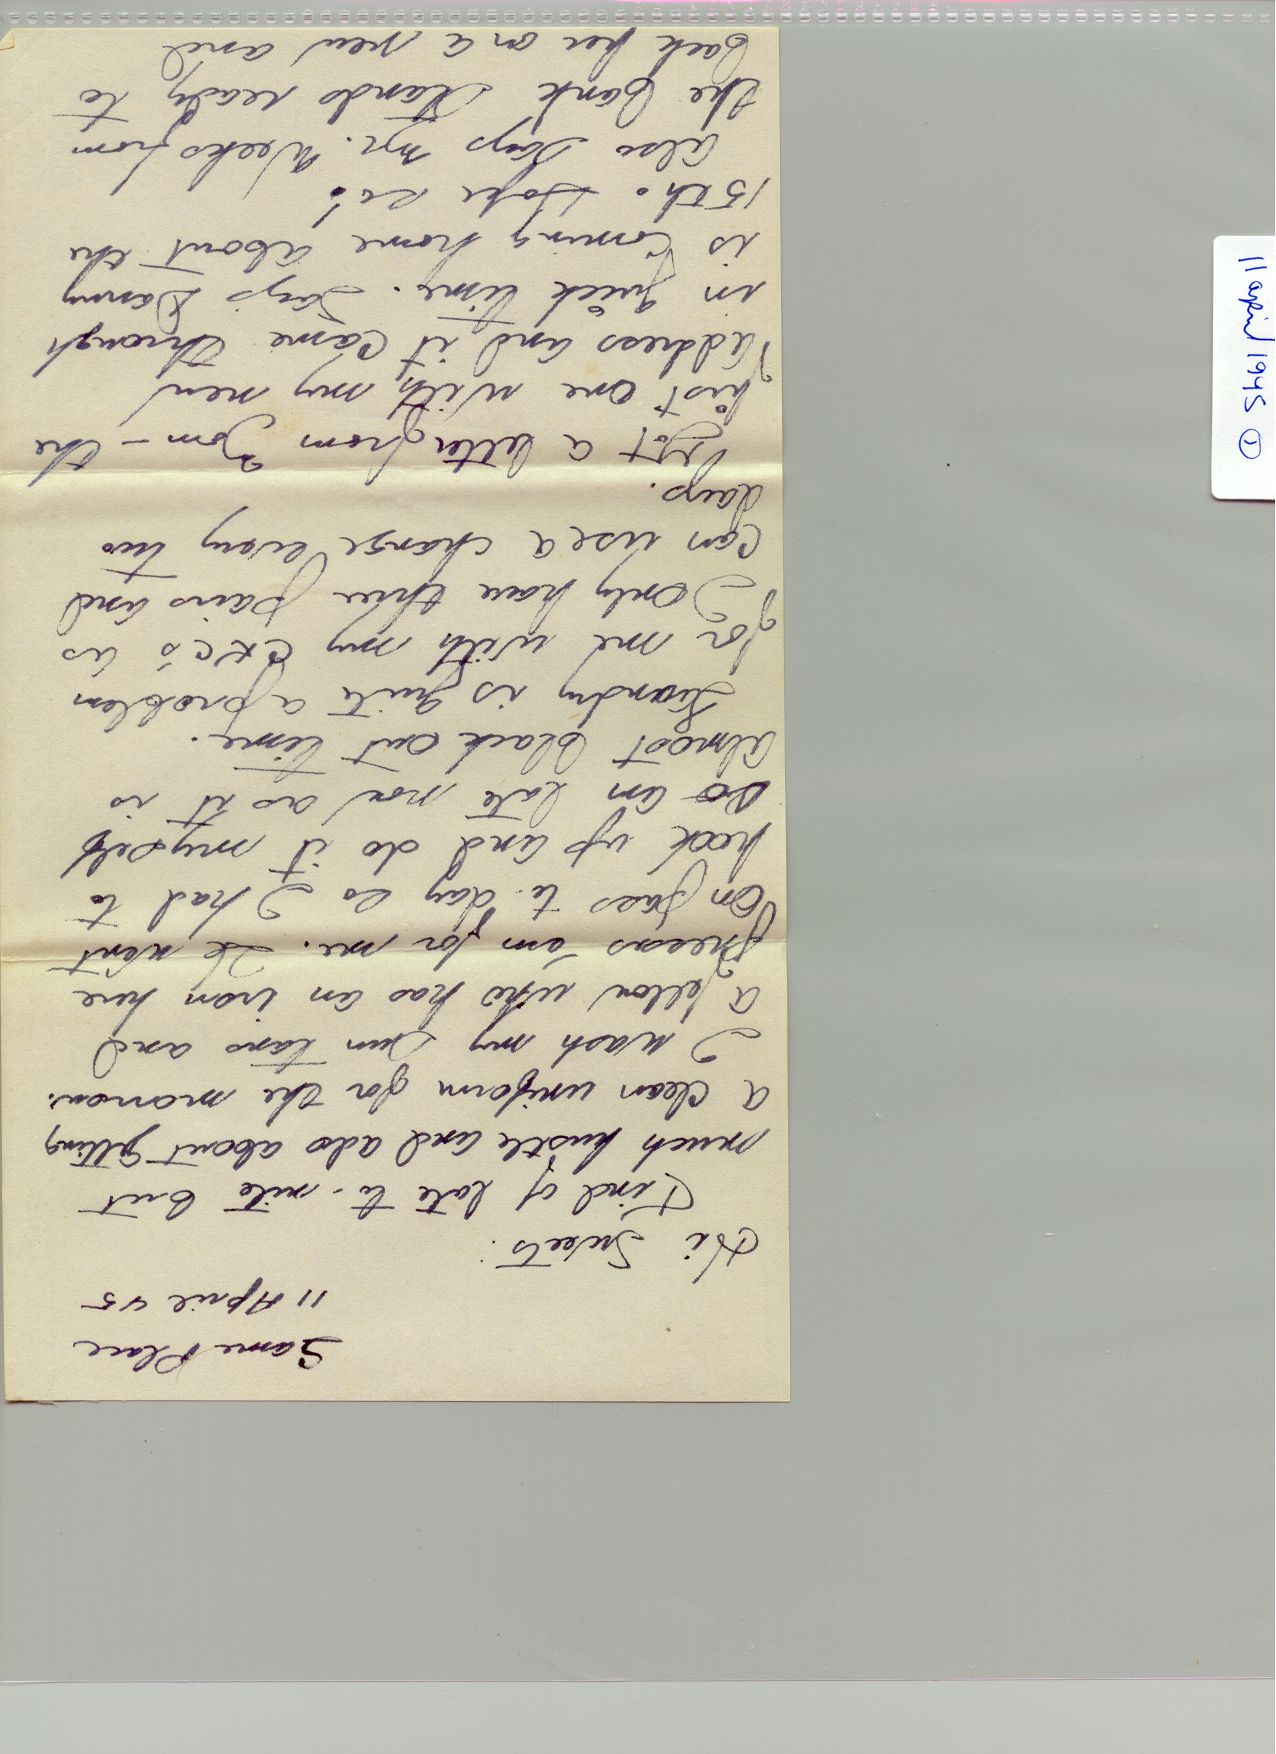 Same Place
11 April 45
Hi Sweets:
Kind of late to-nite but
much hustle and ado about getting
a clean uniform for the morrow.
I wash my sun tans and
a fellow who has an iron here
presses em for me. He went
on pass to-day so I had to
heck up and do it myself
so am late now as it is
almost black out time.
Laundry is quite a problem
for me with my CKC's as
I only have three pairs and
can use a change every two
days.
Got a letter from Mom - the
first one with my new
address and it came through
in quick time. Says Danny
is coming home about the
15th. Hope so!
Also says Mr. Weeks from
the bank stands ready to
back her on a new and
11 april 1945 ①